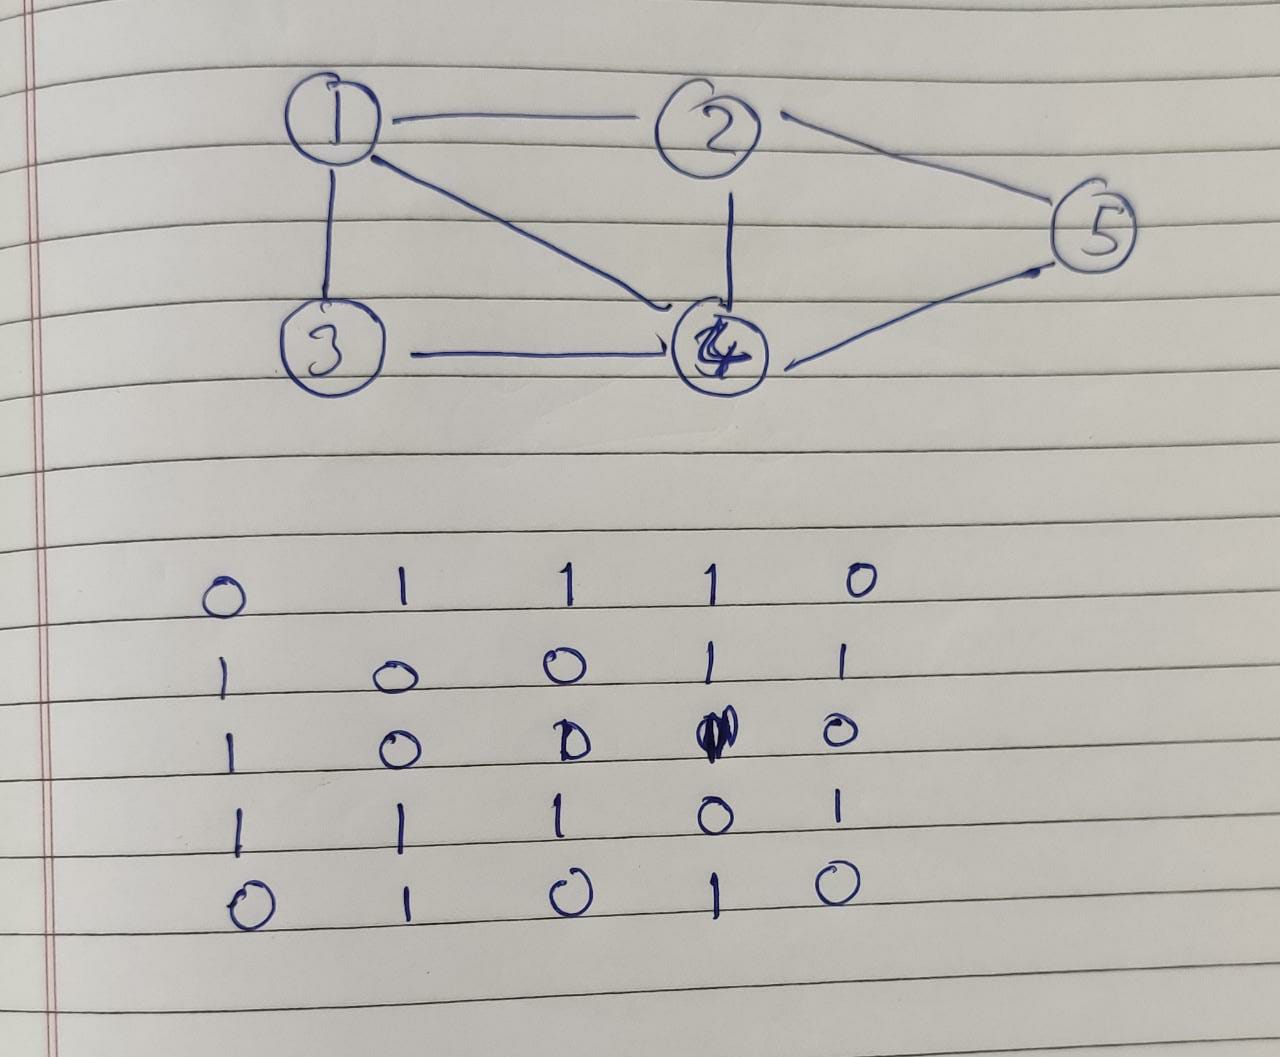 1 2
5
3 4
0 1 1 1 0
1 0 0 1 1
1 0 0 0
1 1 1 0 1
0 1 0 1 0